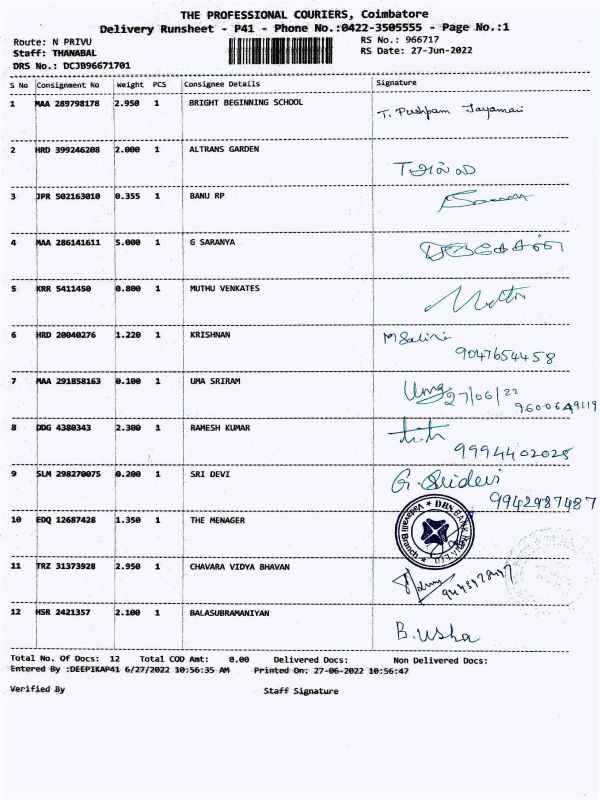 THE PROFESSIONAL COURIERS, Coimbatore
Delivery Runsheet - P41 - Phone No.:0422-3505555 - Page No.:1
Route: N PRIVU RS No.: 966717
Staff: THANABAL RS Date: 27-Jun-2022
DRS No.: DCJB96671701
S No Consignment No Weight PCS Consignee Details Signature
1 MAA 289798178 2.950 1 BRIGHT BEGINNING SCHOOL T. Pushpam Jayamari
2 HRD 399246208 2.000 1 ALTRANS GARDEN
3 JPR 502163010 0.355 1 BANU RP
4 MAA 286141611 5.000 1 G SARANYA
5 KRR 5411450 0.800 1 MUTHU VENKATES
6 HRD 20040276 1.220 1 KRISHNAN
9047654458
7 MAA 291858163 0.100 1 UMA SRIRAM Uma 27/06/22
9600649119
8 DDG 4380343 2.300 1 RAMESH KUMAR
9994402025
9 SLM 298270075 0.200 1 SRI DEVI G. Sridevi
9942987487
10 EDQ 12687428 1.350 1 THE MENAGER DBS BANK
Vadavalli Branch
11 TRZ 31373928 2.950 1 CHAVARA VIDYA BHAVAN
12 HSR 2421357 2.100 1 BALASUBRAMANIYAN B. Usha
Total No. Of Docs: 12 Total COD Amt: 0.00 Delivered Docs: Non Delivered Docs:
Entered By :DEEPIKAP41 6/27/2022 10:56:35 AM Printed On: 27-06-2022 10:56:47
Verified By Staff Signature